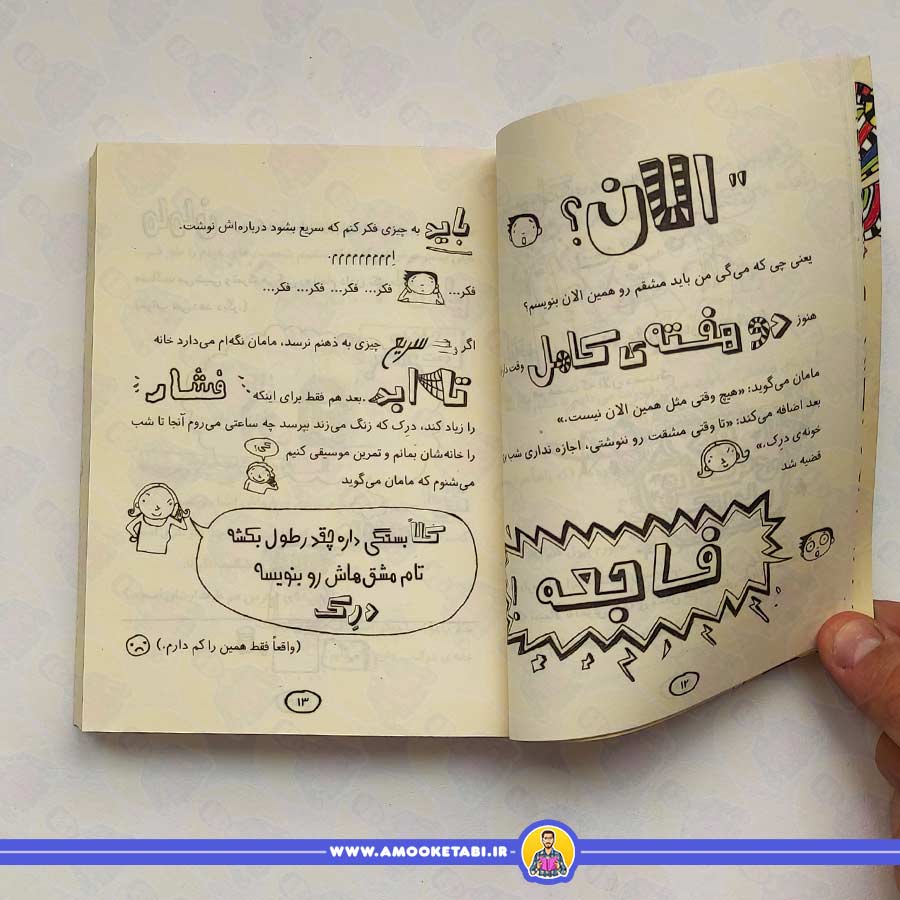 "الان؟
یعنی چی که می‌گی من باید مشقم رو همین الان بنویسم؟
هنوز دو هفته‌ی کامل وقت
مامان می‌گوید: «هیچ وقتی مثل همین الان نیست.»
بعد اضافه می‌کند: «تا وقتی مشقت رو ننوشتی، اجازه نداری شب
خونه‌ی دِرِک.»
قضیه شد
فاجعه
۱۲
باید به چیزی فکر کنم که سریع بشود درباره‌اش نوشت.
اِررررررررر.
فکر... فکر... فکر... فکر... فکر...
اگر زود سریع چیزی به ذهنم نرسد، مامان نگه‌ام می‌دارد خانه
تا ابد. بعد هم فقط برای اینکه فشار
را زیاد کند، دِرِک که زنگ می‌زند بپرسد چه ساعتی می‌روم آنجا تا شب
را خانه‌شان بمانم و تمرین موسیقی کنیم کِی؟
می‌شنوم که مامان می‌گوید
کلاً بستگی داره چقدر طول بکشه
تام مشق‌هاش رو بنویسه
دِرِک
(واقعاً فقط همین را کم دارم.)
۱۳
WWW.AMOOKETABI.IR